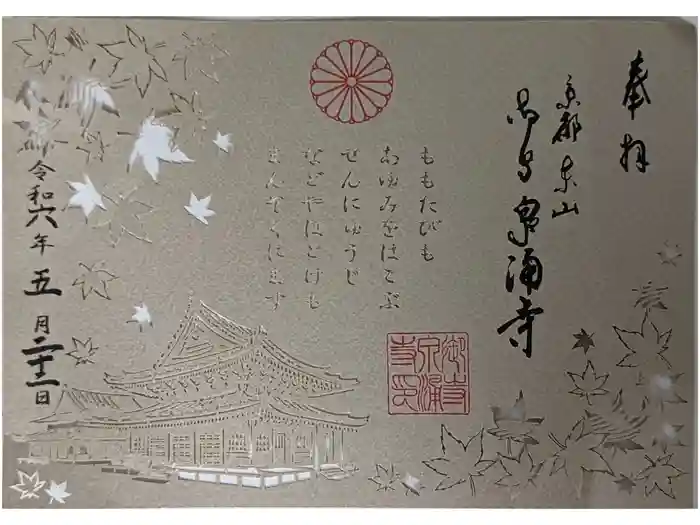 奉拝
京都 東山
御寺 泉涌寺
ももたびも
あゆみをはこぶ
せんにゅうじ
などやほとけも
まんぞくにます
御寺泉涌寺印
令和六年五月二十二日